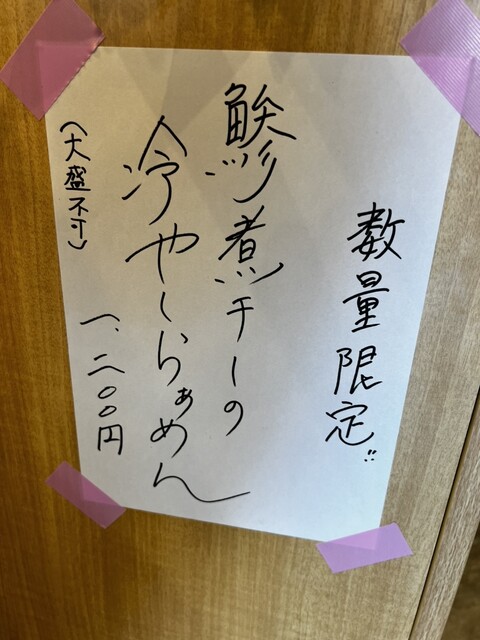 数量限定!!
鯵煮干しの
冷やしらぁめん
（大盛不可）
一、二〇〇円